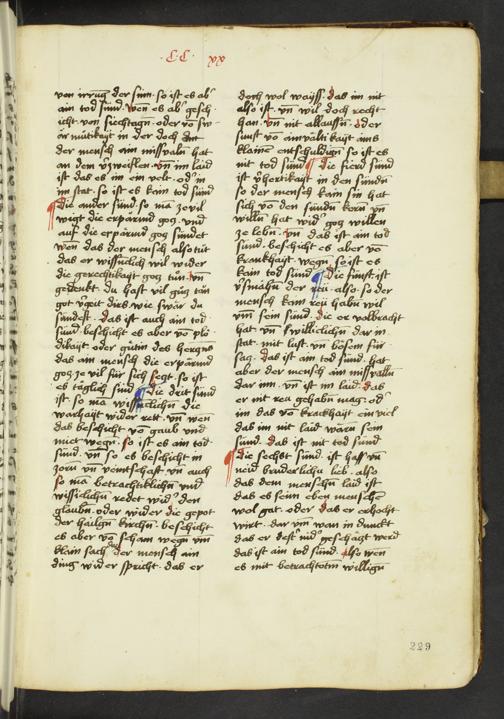 ·CC· xx
von irrūg der sinn · so ist es ab̾
ain tod sünd · wen es ab̾ gesch
icht · von siechtagn̄ · oder vō sw
ār mütikayt in der doch
der mensch ain missvaln̄ hat
an dem v̾zweiflen · vn̄ im laid
ist das es im ein velt · od̾ in
im stat · so ist es kain tod sünd
die ander sünd · so mā ze vil
wigt die erpärmd gocz · vnd
auf die erpärmd gocz sündet
wen das der mensch also tüt
das er wissnclich wil wider
die gerechtikayt gocz tün · vn̄
gedenkt · du hast vil gücz tan
got v̾geit dirs wie swär du
sündest · das ist auch ain tod
sünd · beschicht es aber vō plö
dikayt · oder gütin des herczns
das ain mensch die erpärmd
gocz ze vil für sich seczt · so ist
es täglich sünd die drit sünd
ist · so mā wissnclichn̄ die
warhayt wider rett · vn̄ wen
das beschicht vō gaub vnd
miet wegn̄ · so ist es ain tod
sünd · vn̄ so es beschicht in
zorn vn̄ veintschaft · vn̄ auch
so mā betrachtiklichn̄ vnd
wissiclichn̄ redet wid̾ den
glaubn̄ · oder wider die gepot
der hailgn̄ kirchn̄ · beschicht
es aber vō scham wegn̄ vm̄
klain sach · der mensch ain
ding wider spricht · das er
doch wol wayss · das im nit
also ist · vn̄ wil doch recht
han · vn̄ nit allaussn̄ · oder
sunst vō ainvaltikayt ains
klainen entschuldign̄ so ist es
nit tod sünd die fierd sünd
ist v̾hertikayt in den sündn̄
so der mensch kain sin hat
sich vō den sündn̄ kern vn̄
willn̄ hat wid̾ gocz willen
ze lebn̄ · vn̄ das ist ain tod
sünd · beschicht es aber vō
krankhayt wegn̄ · so ist es
kain tod sünd die fünft ist
v̾smähn̄ der reü · also · so der
mensch kain reü habn̄ wil
vm̄ sein sünd · die er volbracht
hat vn̄ frwilliclichn̄ dar in
stat · mit lust · vn̄ bösem für
sacz · das ist ain tod sünd · hat
aber der mensch ain missvalln̄
dar inn · vn̄ ist im laid · das
er nit reü gehabn̄ mag · od̾
im das vō krackhayt ein viel
das im nit laid wärn sein
sünd · das ist nit tod sünd
die sechst sünd · ist hass vn̄
neid brüderlichn̄ leb · also
das dem menschn̄ laid ist
das es seim eben menschn̄
wol gat · oder das er erhöcht
wirt · dar vm̄ wan in dunckt
das er dest mīd̾ geschäczt werd
das ist ain tod sünd · also wen
es mit betrachtotm̄ willign̄
229